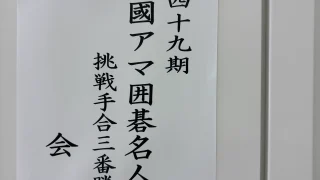 四十九期
國アマ囲碁名人
挑戦手合三番勝
会